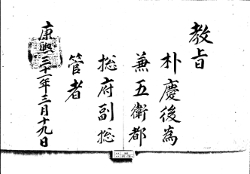 教旨
朴慶後為
兼五衛都
摠府副摠
管者
康熙三十年三月十九日